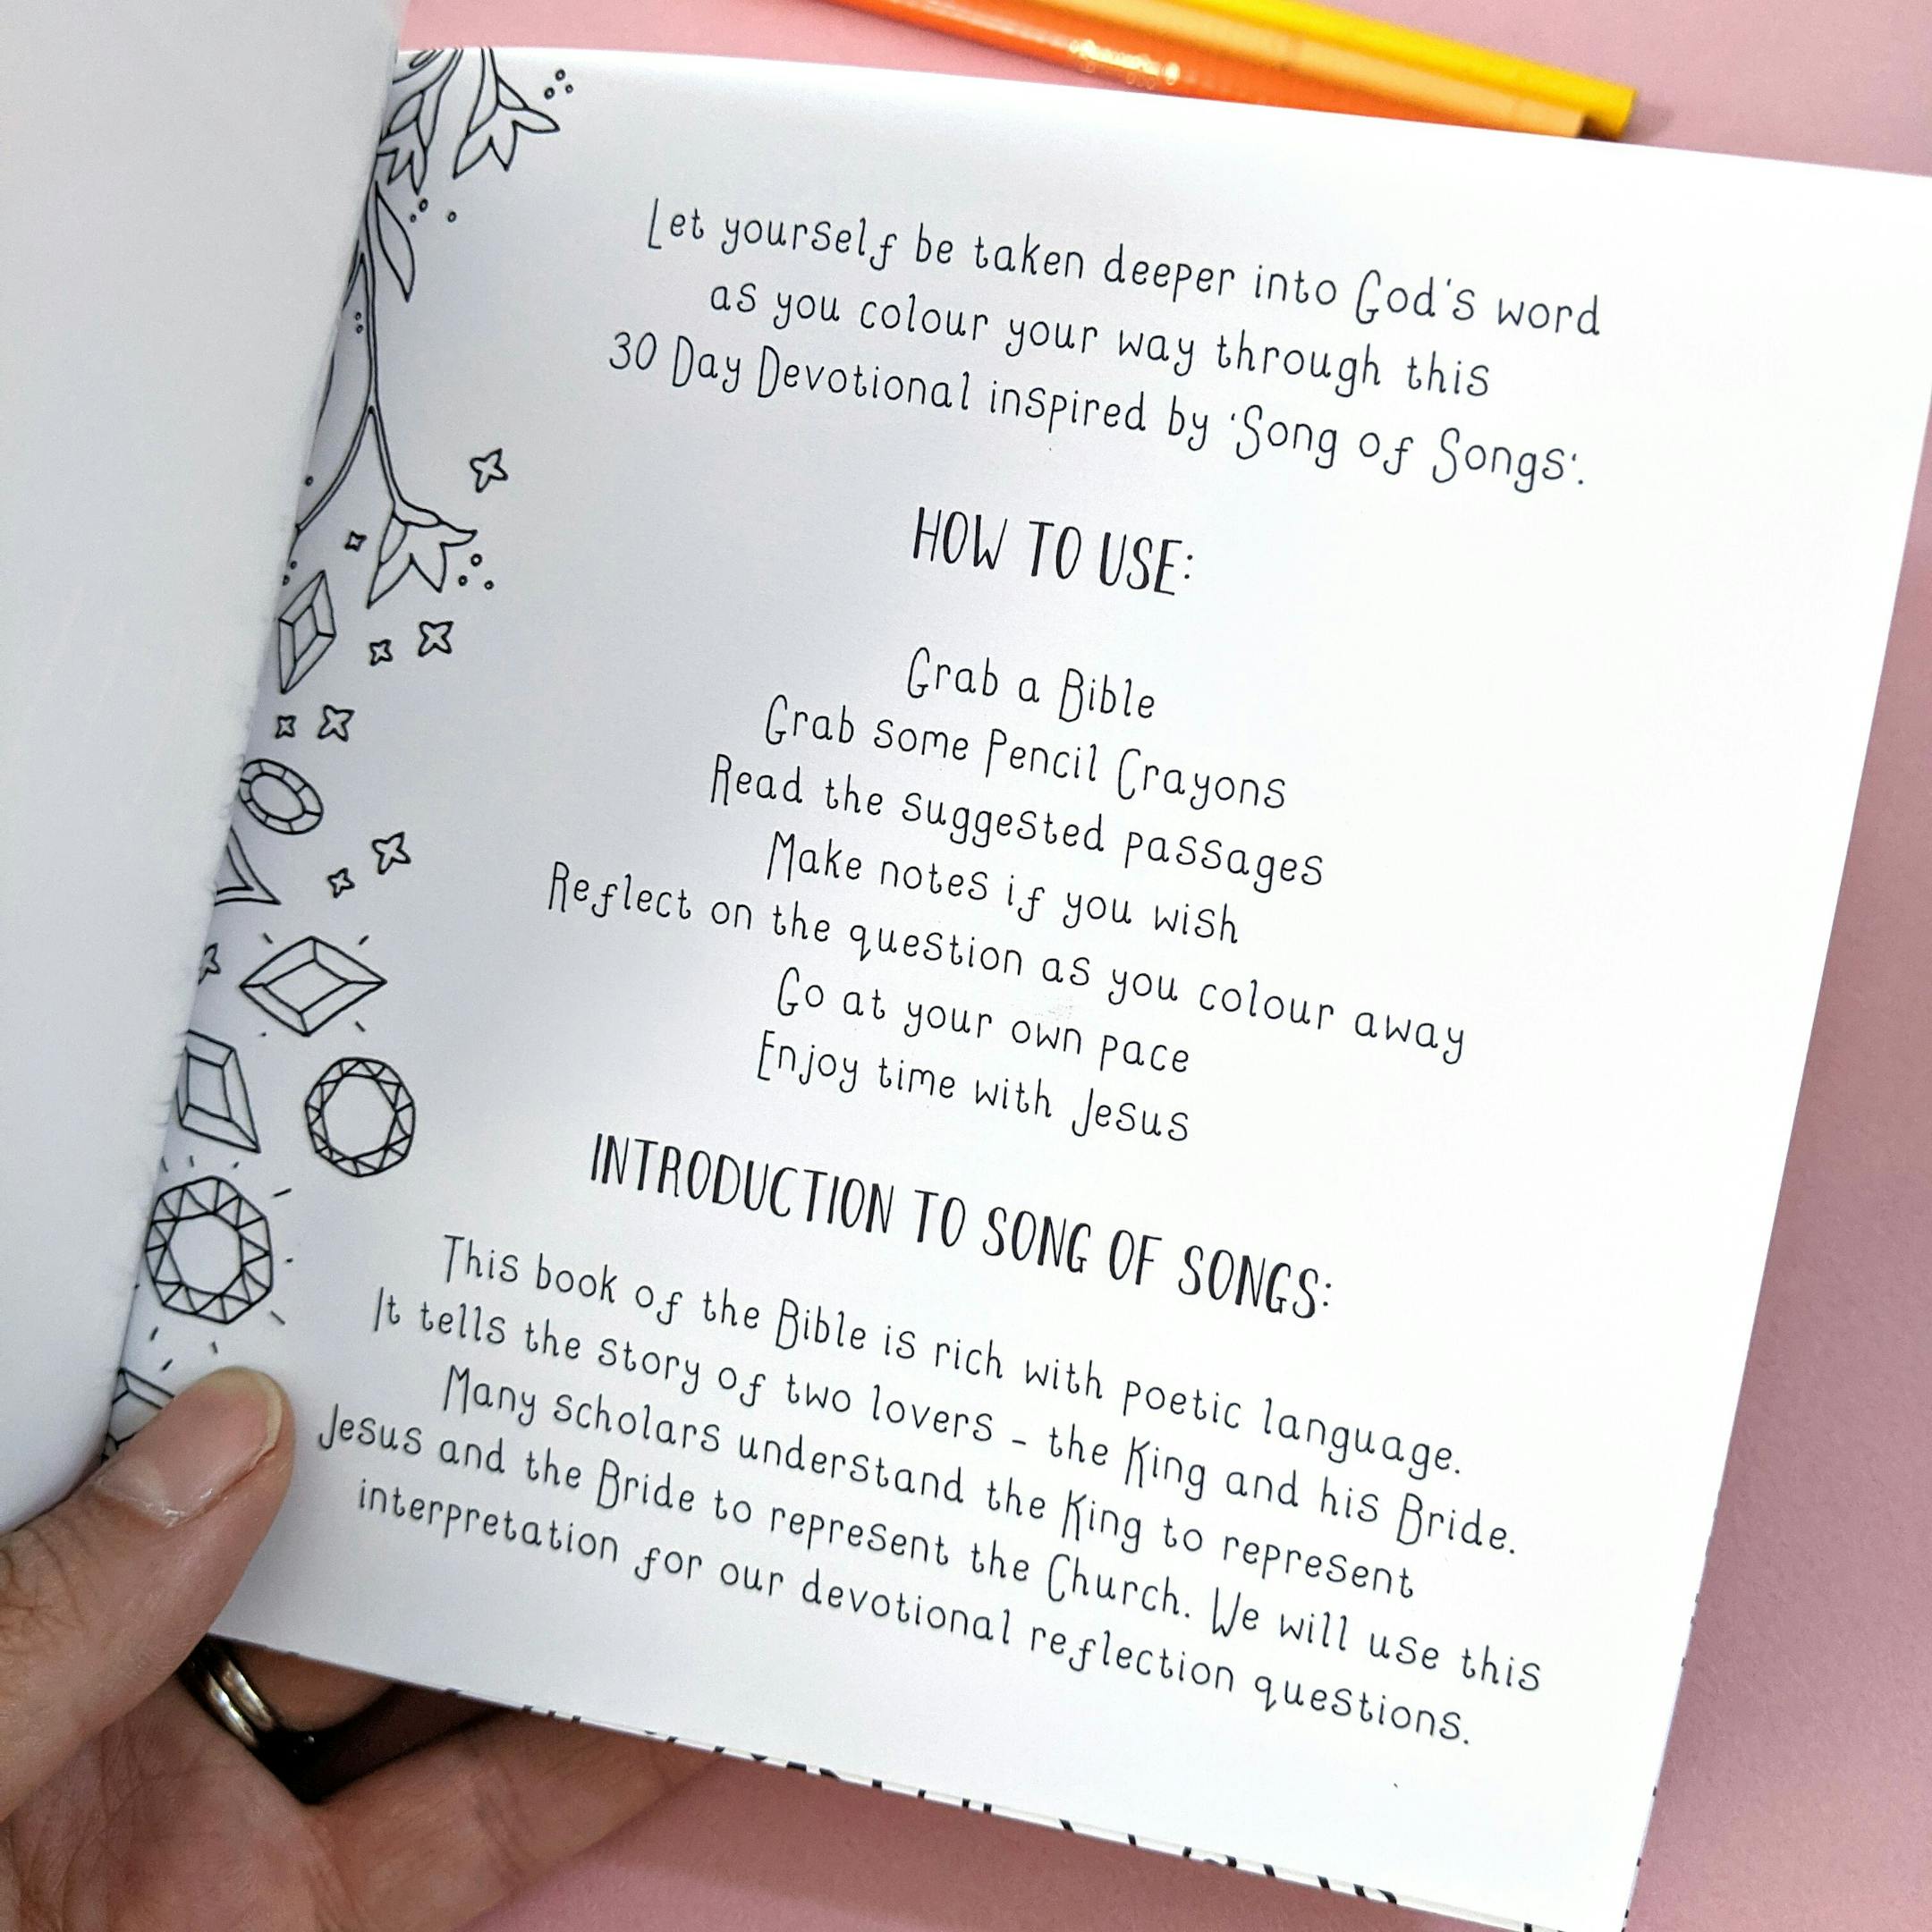 Let yourself be taken deeper into God's word
as you colour your way through this
30 Day Devotional inspired by 'Song of Songs'.
HOW TO USE:
Grab a Bible
Grab some Pencil Crayons
Read the suggested passages
Make notes if you wish
Reflect on the question as you colour away
Go at your own pace
Enjoy time with Jesus
INTRODUCTION TO SONG OF SONGS:
This book of the Bible is rich with poetic language.
It tells the story of two lovers - the King and his Bride.
Many scholars understand the King to represent
Jesus and the Bride to represent the Church. We will use this
interpretation for our devotional reflection questions.